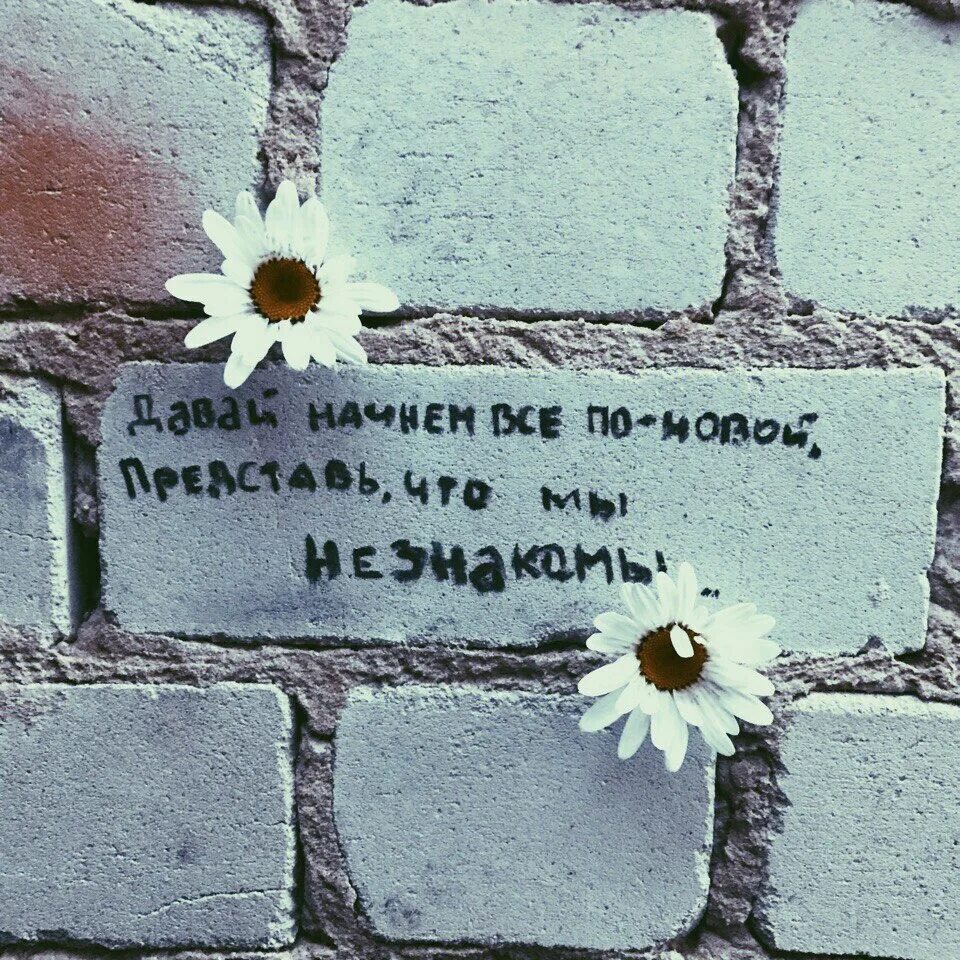 Давай начнем все по-новой,
Представь, что мы
незнакомы...